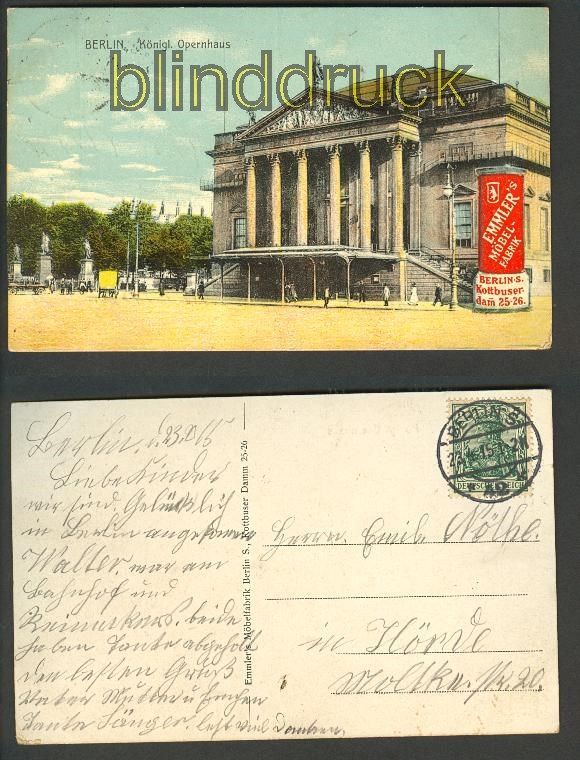 BERLIN. Königl. Opernhaus
blinddruck
EMMLER's
MÖBEL-
FABRIK
BERLIN-S.
Kottbuser-
dam 25-26.
Berlin, d. 23.
Liebe Kinder
wir sind Gelücklich
in Berlin angekomm
Walter war am
Bahnhof und
beide
haben Tante abgeholt
den besten Gruß
Vater Mutter u
Tante Sänger. lest viel
Emmler's Möbelfabrik Berlin S., Kottbuser Damm 25-26
BERLIN S.
DEUTSCHES REICH
Herrn Emil Nöthe.
in Hörde
Moltke str. 20.